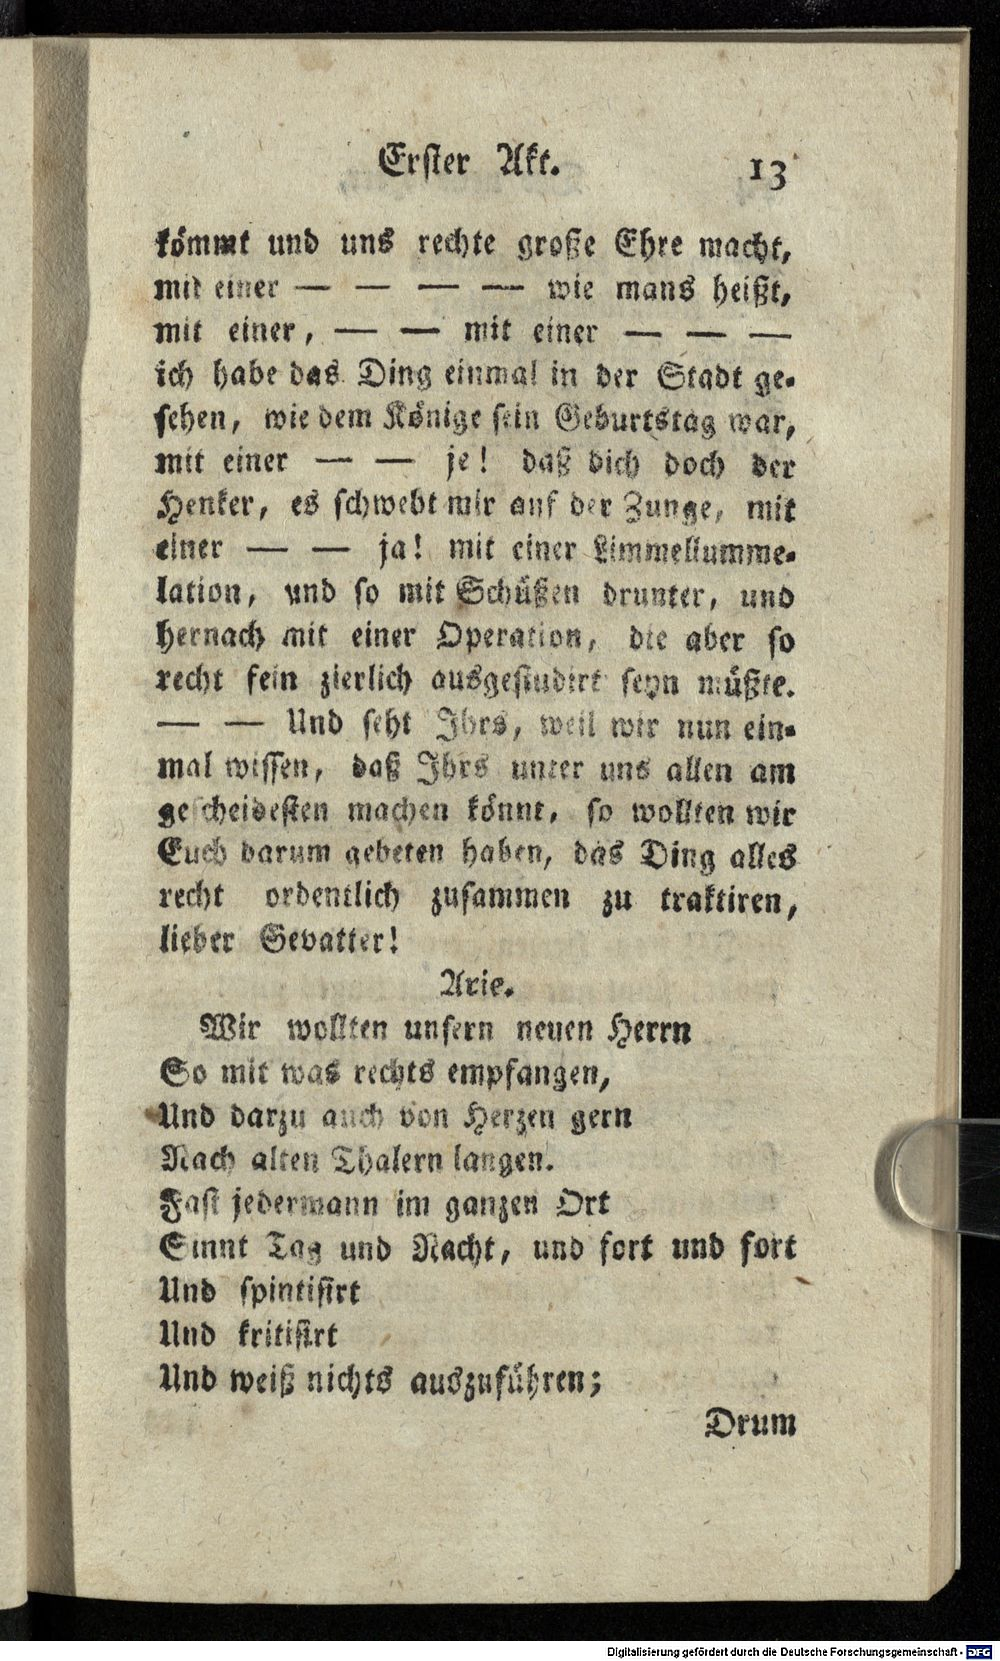 Erster Akt. 13
kömmt und uns rechte große Ehre macht,
mit einer — — — — wie mans heißt,
mit einer, — — mit einer — — —
ich habe das Ding einmal in der Stadt ge-
sehen, wie dem Könige sein Geburtstag war,
mit einer — — je! daß dich doch der
Henker, es schwebt mir auf der Zunge, mit
einer — — ja! mit einer Limmellumme-
lation, und so mit Schüßen drunter, und
hernach mit einer Operation, die aber so
recht fein zierlich ausgestudirt seyn müßte.
— — Und seht Ihrs, weil wir nun ein-
mal wissen, daß Ihrs unter uns allen am
gescheidesten machen könnt, so wollten wir
Euch darum gebeten haben, das Ding alles
recht ordentlich zusammen zu traktiren,
lieber Gevatter!
Arie.
Wir wollten unsern neuen Herrn
So mit was rechts empfangen,
Und darzu auch von Herzen gern
Nach alten Thalern langen.
Fast jedermann im ganzen Ort
Sinnt Tag und Nacht, und fort und fort
Und spintisirt
Und kritisirt
Und weiß nichts auszuführen;
Drum
Digitalisierung gefördert durch die Deutsche Forschungsgemeinschaft - DFG